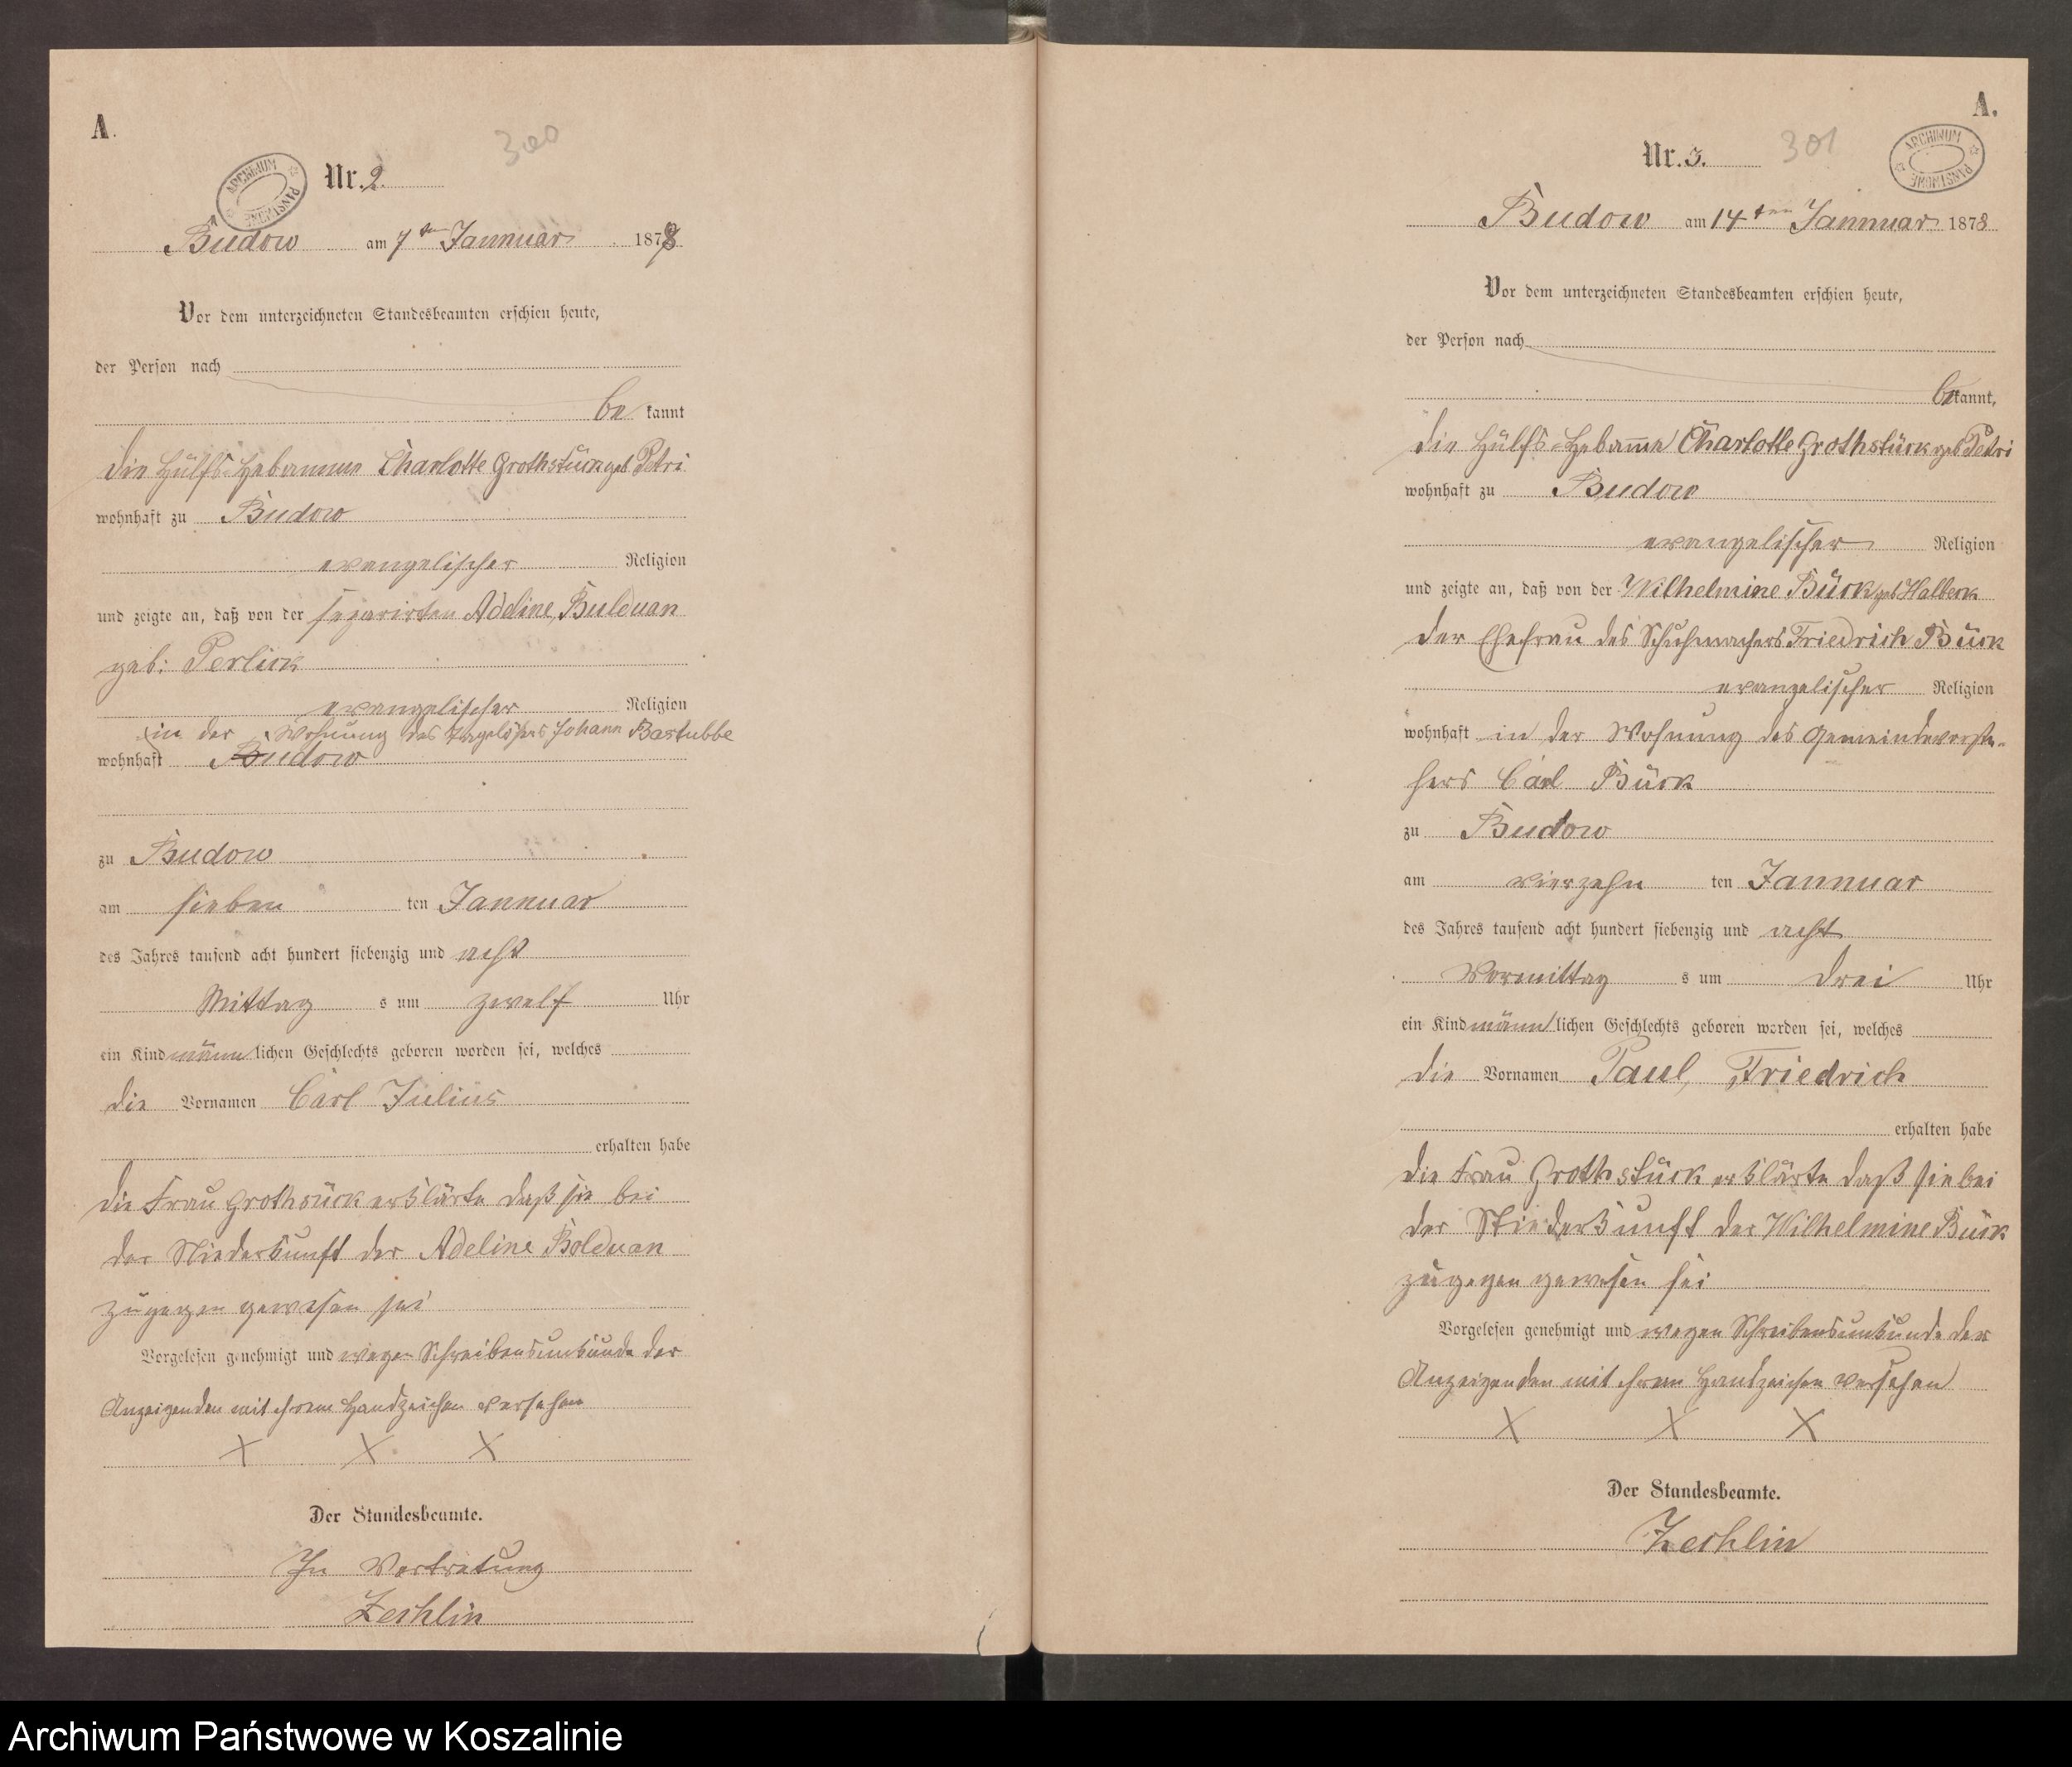 A.
300
ARCHIWUM PAŃSTWOWE
Nr. 2.
Budow am 7ten Jannuar 1878
Vor dem unterzeichneten Standesbeamten erschien heute,
der Person nach
be kannt
die Hülfs-Hebamme Charlotte Grothstück geb Petri
wohnhaft zu Budow
evangelischer Religion
und zeigte an, daß von der separirten Adeline Bulduan
geb: Perlick
evangelischer Religion
in der Wohnung des Tagelöhners Johann Bastubbe
wohnhaft Budow
zu Budow
am sieben ten Jannuar
des Jahres tausend acht hundert siebenzig und acht
Mittag s um zwelf Uhr
ein Kind männlichen Geschlechts geboren worden sei, welches
die Vornamen Carl Julius
erhalten habe
die Frau Grothsück erklärte daß sie bei
der Niederkunft der Adeline Bolduan
zugegen gewesen sei
Vorgelesen genehmigt und wegen Schreibensunkunde der
Anzeigenden mit ihrem Handzeichen versehen
X X X
Der Standesbeamte.
In Vertretung
Zechlin
A.
301
ARCHIWUM PAŃSTWOWE
Nr. 3.
Budow am 14ten Jannuar 1878
Vor dem unterzeichneten Standesbeamten erschien heute,
der Person nach
bekannt,
die Hülfs-Hebamme Charlotte Grothstück geb Petri
wohnhaft zu Budow
evangelischer Religion
und zeigte an, daß von der Wilhelmine Bück geb Halbeck
der Ehefrau des Schuhmachers Friedrich Bück
evangelischer Religion
wohnhaft in der Wohnung des Gemeindevorste-
hers Carl Bück
zu Budow
am vierzehn ten Jannuar
des Jahres tausend acht hundert siebenzig und acht
Vormittag s um drei Uhr
ein Kind männlichen Geschlechts geboren worden sei, welches
die Vornamen Paul, Friedrich
erhalten habe
die Frau Grothstück erklärte daß sie bei
der Niederkunft der Wilhelmine Bück
zugegen gewesen sei
Vorgelesen genehmigt und wegen Schreibensunkunde der
Anzeigenden mit ihrem Handzeichen versehen
X X X
Der Standesbeamte.
Zechlin
Archiwum Państwowe w Koszalinie